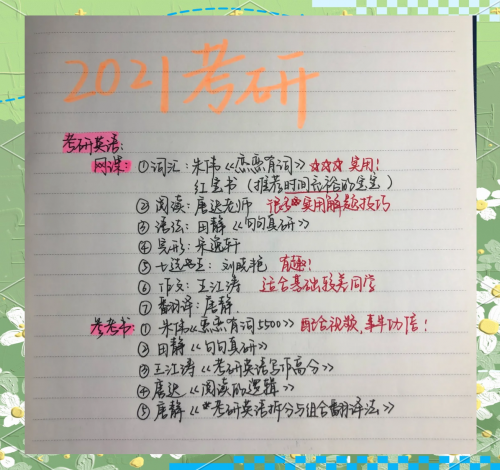 2021考研
考研英语:
网课: ①词汇: 朱伟《恋恋有词》☆☆☆ 实用!
红宝书 (推荐时间充裕的宝宝)
②阅读: 唐迟老师 很多实用解题技巧
③语法: 田静《句句真研》
④完形: 宋逸轩
⑤七选五: 刘晓艳 有趣!
⑥作文: 王江涛 适合基础较差同学
⑦翻译: 唐静
参考书: ①朱伟《恋恋有词5500》配合视频, 事半功倍!
②田静《句句真研》
③王江涛《考研英语写作高分》
④唐迟《阅读的逻辑》
⑤唐静《考研英语拆分与组合翻译法》